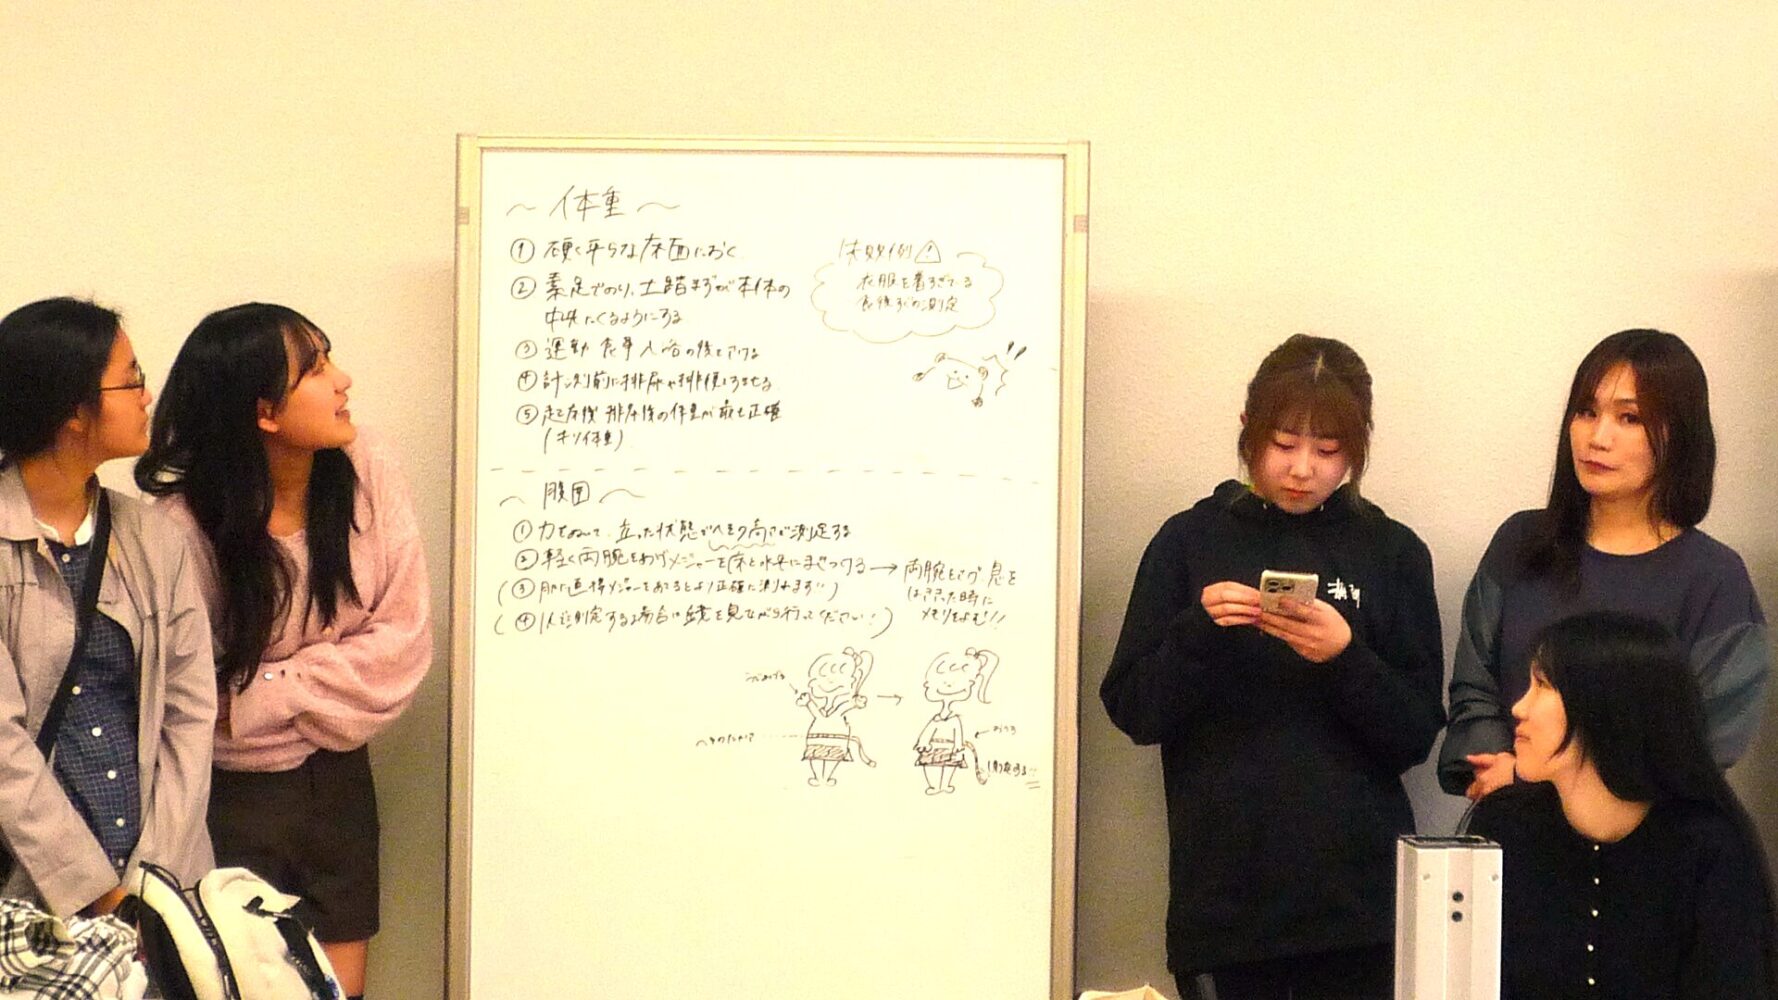 ～ 体重 ～
① 硬く平らな床面におく
② 素足でのり、土踏まずが本体の
中央にくるようにする
③ 運動 食事 入浴の後をさける
④ 計測前に排尿や排便をすませる
⑤ 起床後 排尿後の体重が最も正確
失敗例
衣服を着すぎている
食後すぐの測定
～ 腹囲 ～
① 力をぬいて、立った状態でヘその高さで測定する
② 軽く両腕をあげメジャーを床と水平にまきつける → 両腕をさげ 息を
はききった時に
メモリをよむ!!
(③ 肌に直接メジャーをあてるとより正確に測れます)
(④ 1人で測定する場合は鏡を見ながら行ってください!)
うでをあげる
へそのたかさ
おろす
測定する